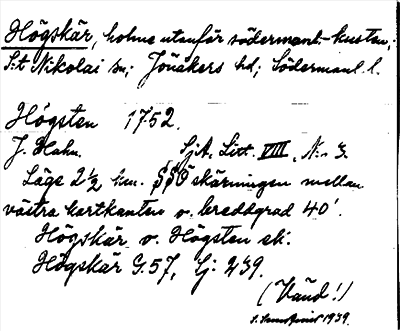 Högskär, holme utanför södermanl.-kusten,
S:t Nikolai sn; Jönåkers hd; Södermanl. l.
Högsten 1752.
J. Hahn. SjA. Litt. VIII N:r 3.
Läge 2½ km. SSÖ skärningen mellan
västra kartkanten o. breddgrad 40'.
Högskär o. Högsten sk.
Högskär G. 57, Sj: 239.
(Vänd!)
1939.